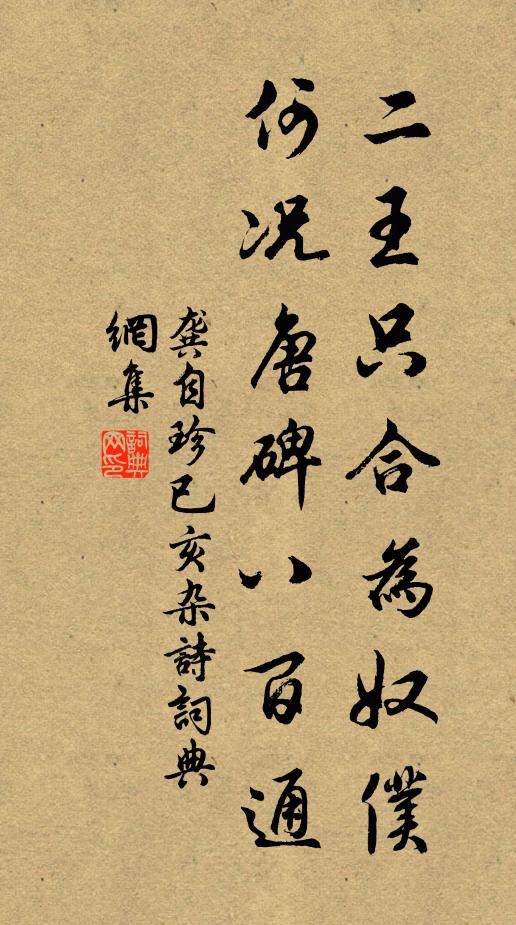 二王只合為奴僕
何況唐碑八百通
龔自珍己亥杂詩詞典
網集
詞典網印